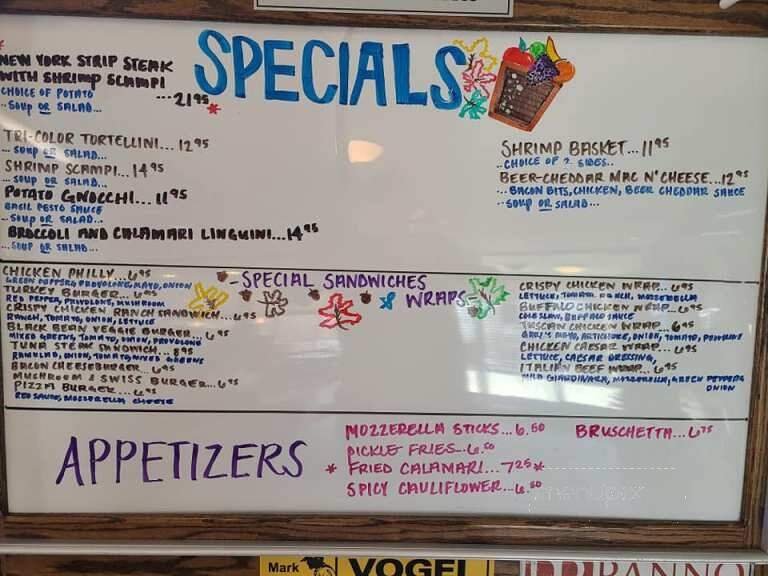 SPECIALS
NEW YORK STRIP STEAK
WITH SHRIMP SCAMPI
...21⁹⁵
CHOICE OF POTATO
..SOUP OR SALAD...
TRI-COLOR TORTELLINI...12⁹⁵
..SOUP OR SALAD...
SHRIMP SCAMPI...14⁹⁵
..SOUP OR SALAD...
POTATO GNOCCHI...11⁹⁵
BASIL PESTO SAUCE
..SOUP OR SALAD...
BROCCOLI AND CALAMARI LINGUINI...14⁹⁵
..SOUP OR SALAD...
SHRIMP BASKET...11⁹⁵
..CHOICE OF 2 SIDES..
BEER-CHEDDAR MAC N' CHEESE...12⁹⁵
..BACON BITS, CHICKEN, BEER CHEDDAR SAUCE
..SOUP OR SALAD...
-SPECIAL SANDWICHES
& WRAPS-
CHICKEN PHILLY...6⁹⁵
GREEN PEPPERS, PROVOLONE, MAYO, ONION
TURKEY BURGER...6⁹⁵
RED PEPPER, PROVOLONE, MUSHROOM
CRISPY CHICKEN RANCH SANDWICH...6⁹⁵
RANCH, TOMATO, ONION, LETTUCE
BLACK BEAN VEGGIE BURGER...6⁹⁵
MIXED GREENS, TOMATO, ONION, PROVOLONE
TUNA STEAK SANDWICH...8⁹⁵
ONION, TOMATO, MIXED GREENS
BACON CHEESEBURGER...6⁹⁵
MUSHROOM & SWISS BURGER...6⁹⁵
PIZZA BURGER...6⁹⁵
RED SAUCE, MOZZERELLA CHEESE
CRISPY CHICKEN WRAP...6⁹⁵
LETTUCE, TOMATO, RANCH, MOZZERELLA
BUFFALO CHICKEN WRAP...6⁹⁵
COLE SLAW, BUFFALO SAUCE
TUSCAN CHICKEN WRAP...6⁹⁵
GARLIC MAYO, ARTICHOKE, ONION, TOMATO, PROVOLONE
CHICKEN CAESAR WRAP...6⁹⁵
LETTUCE, CAESAR DRESSING,
ITALIAN BEEF WRAP...6⁹⁵
MILD GIARDINARA, MOZZERELLA, GREEN PEPPERS
ONION
APPETIZERS
MOZZERELLA STICKS...6.50
PICKLE FRIES...6.⁵⁰
* FRIED CALAMARI...7²⁵ *
SPICY CAULIFLOWER...6.⁵⁰
BRUSCHETTA...6⁷⁵
menupix
Mark VOGEL
PANNO